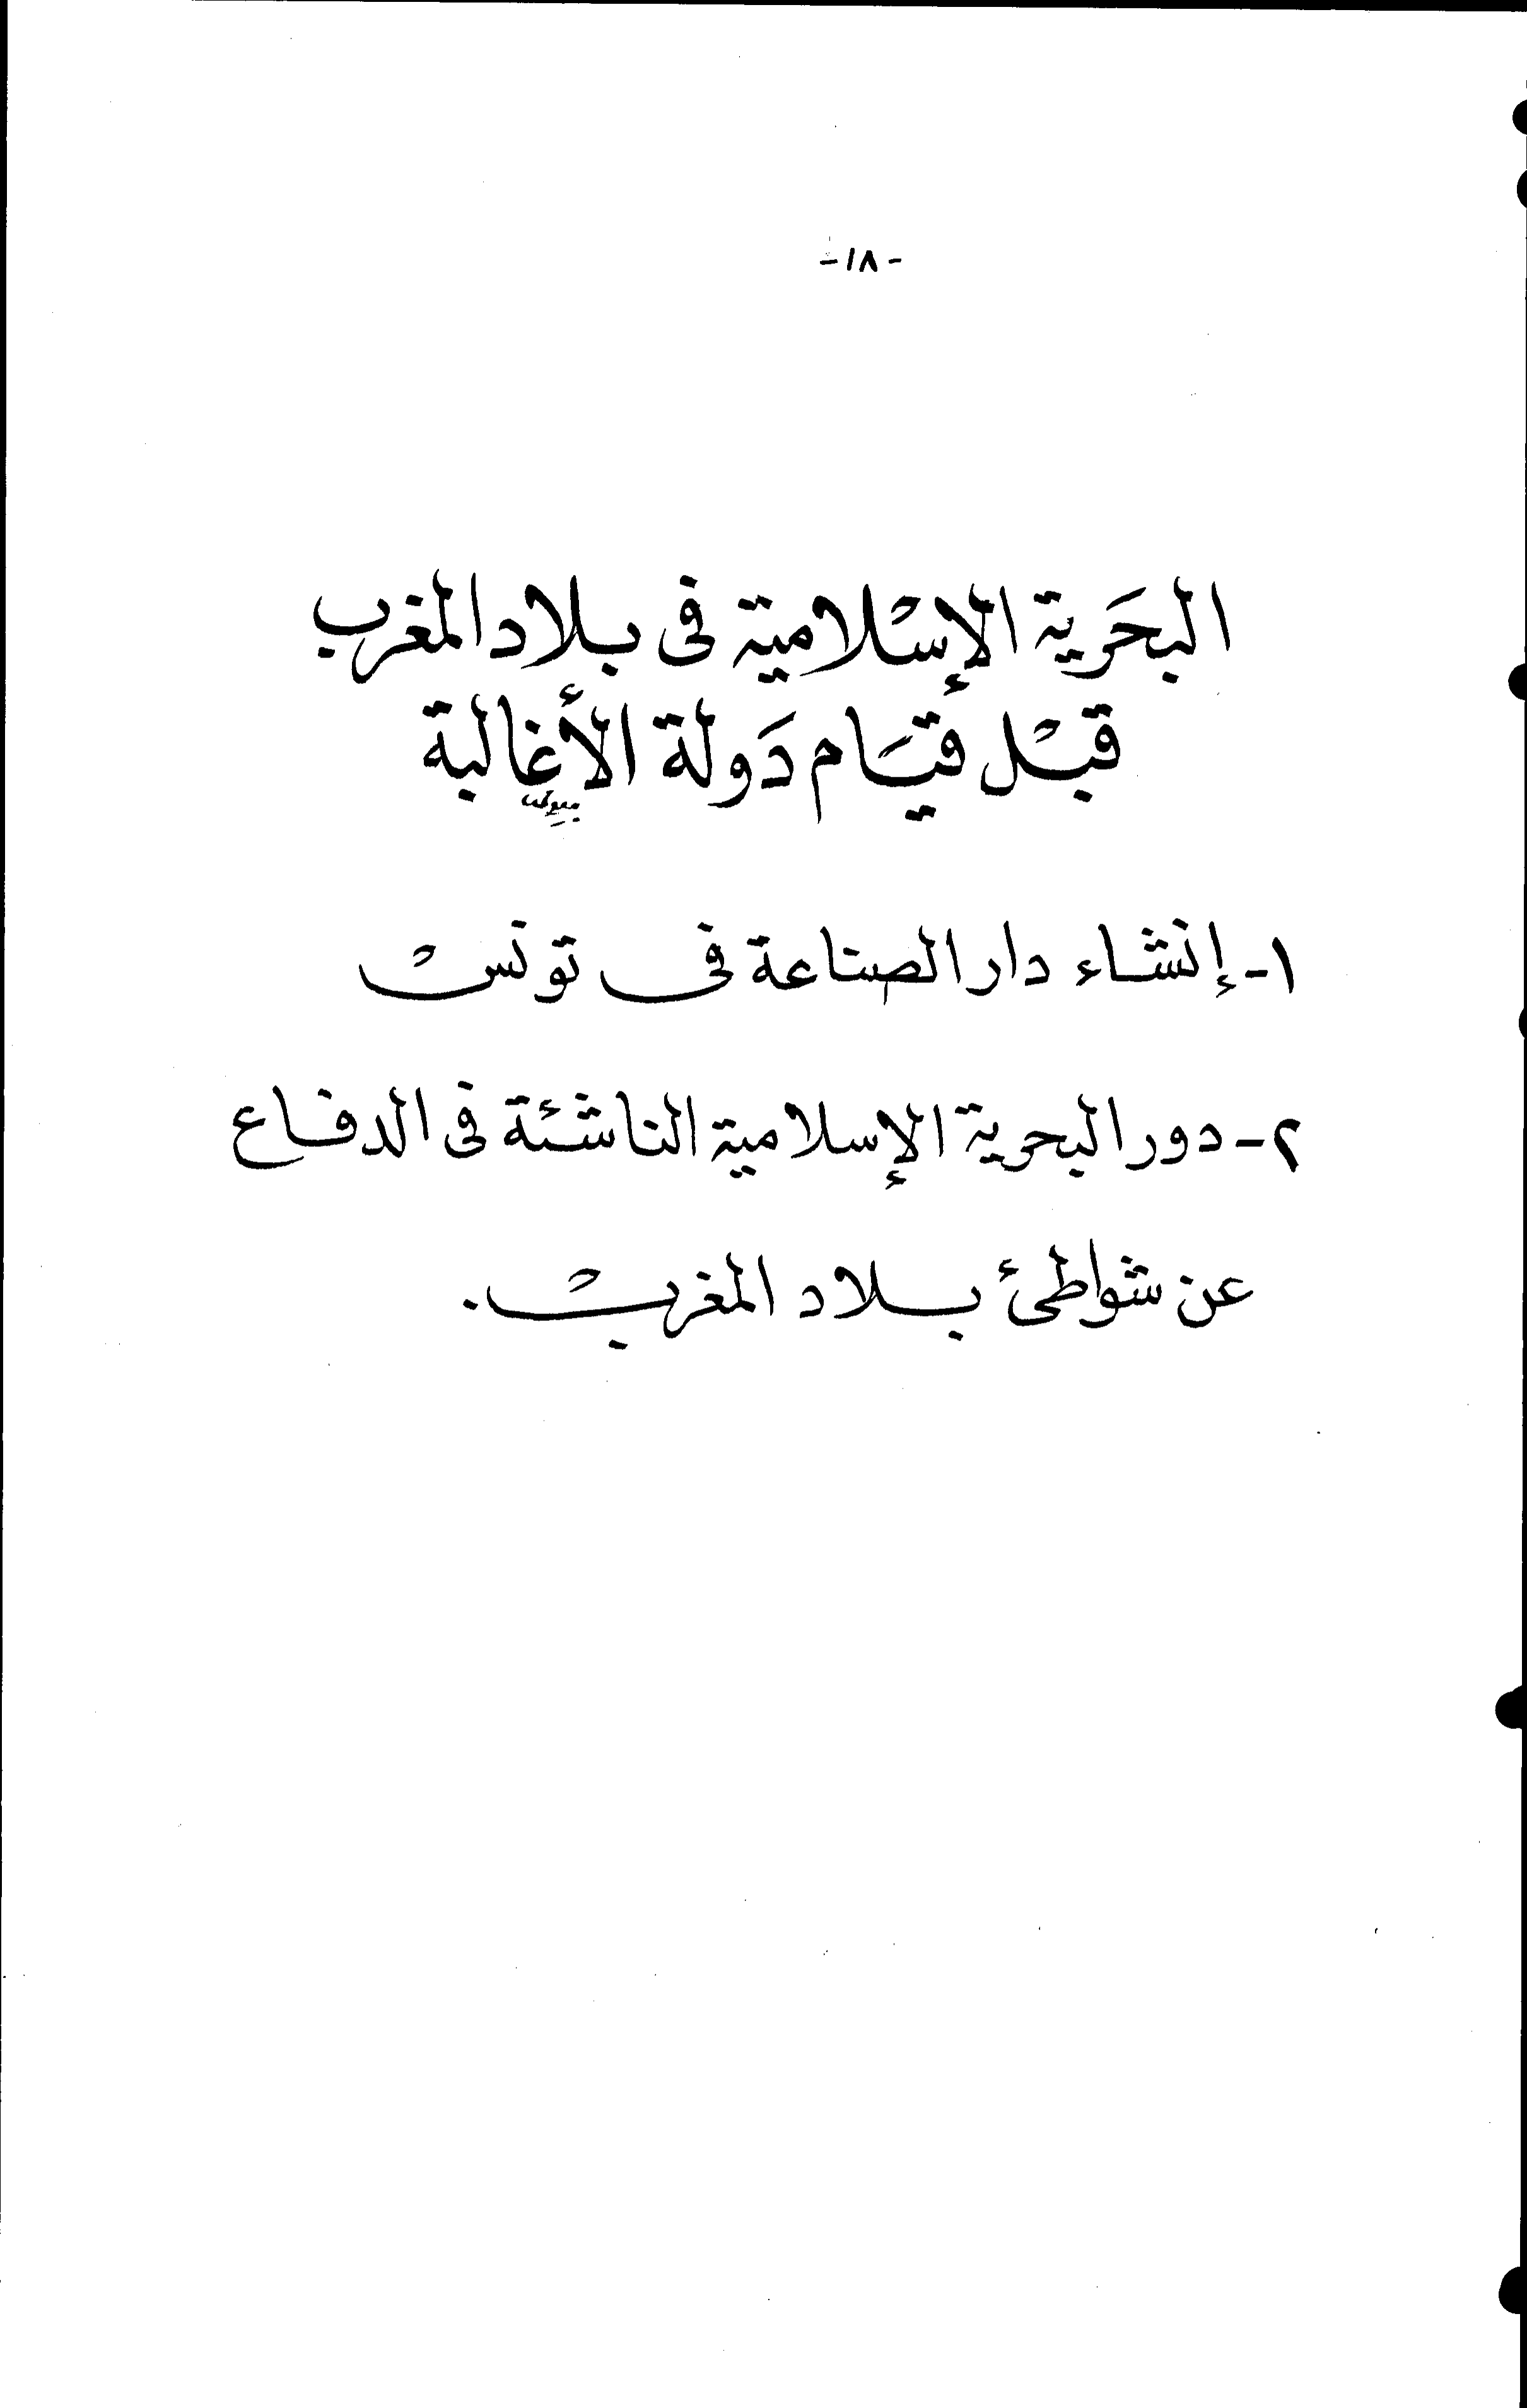 -١٨-
البحَرية الإسْلامية فى بلاد المغرب
قبْل قيَام دَولة الأغالبة
١- إنشاء دار الصناعة فى تونسْ
٢- دور البحرية الإسلامية الناشئة فى الدفاع
عن شواطئ بلاد المغربْ.